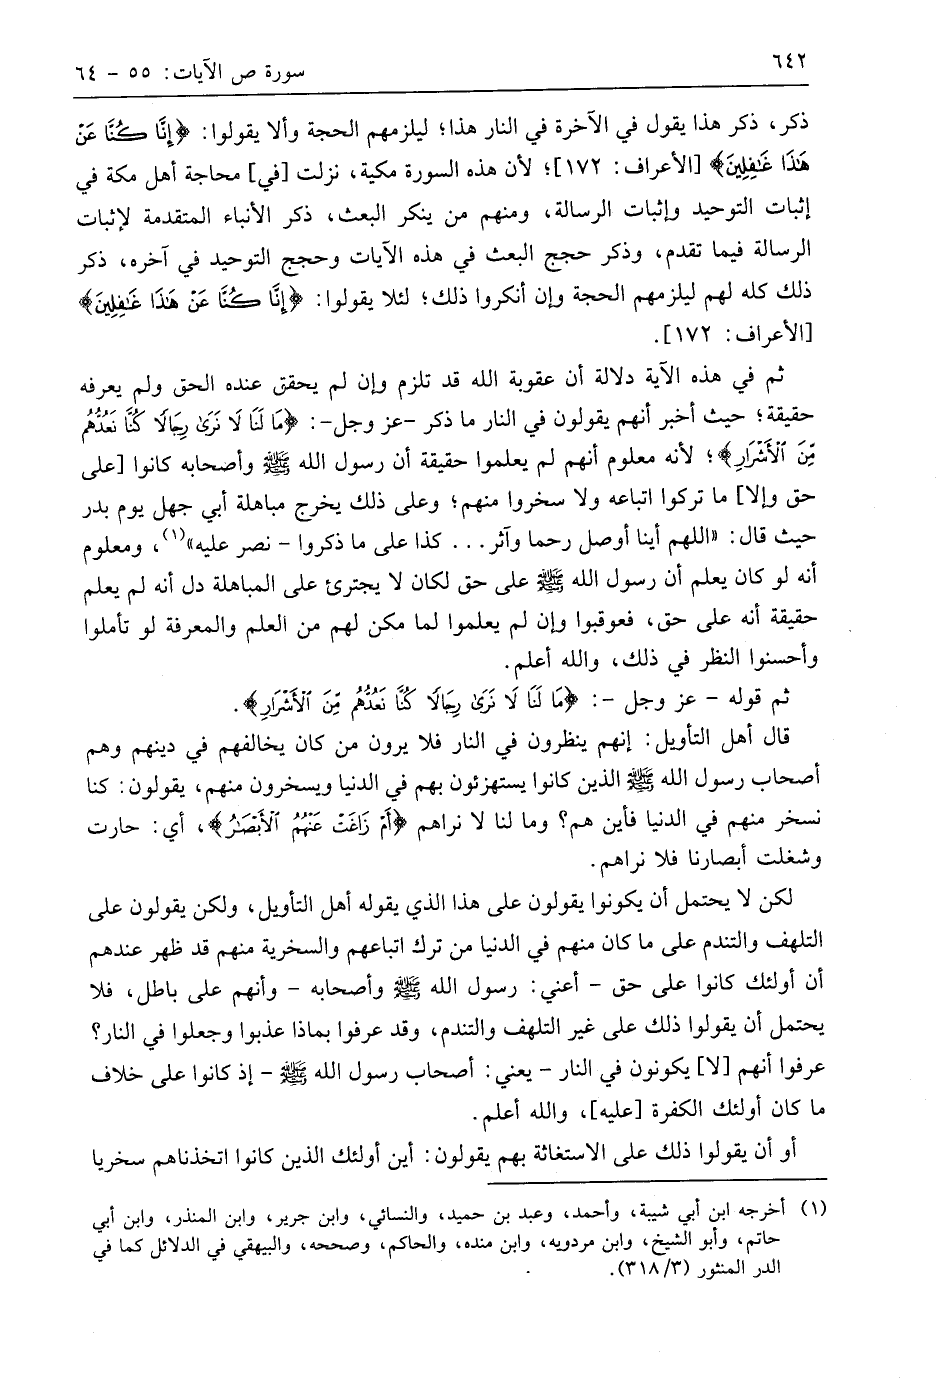 ٦٤٢
سورة ص الآيات: ٥٥ - ٦٤
ذكر، ذكر هذا يقول في الآخرة في النار هذا؛ ليلزمهم الحجة وألا يقولوا: ﴿إِنَّا كُنَّا عَنْ
هَٰذَا غَٰفِلِينَ﴾ [الأعراف: ١٧٢]؛ لأن هذه السورة مكية، نزلت [في] محاجة أهل مكة في
إثبات التوحيد وإثبات الرسالة، ومنهم من ينكر البعث، ذكر الأنباء المتقدمة لإثبات
الرسالة فيما تقدم، وذكر حجج البعث في هذه الآيات وحجج التوحيد في آخره، ذكر
ذلك كله لهم ليلزمهم الحجة وإن أنكروا ذلك؛ لئلا يقولوا: ﴿إِنَّا كُنَّا عَنْ هَٰذَا غَٰفِلِينَ﴾
[الأعراف: ١٧٢].
ثم في هذه الآية دلالة أن عقوبة الله قد تلزم وإن لم يحقق عنده الحق ولم يعرفه
حقيقة؛ حيث أخبر أنهم يقولون في النار ما ذكر -عز وجل-: ﴿مَا لَنَا لَا نَرَىٰ رِجَالًا كُنَّا نَعُدُّهُم
مِّنَ ٱلْأَشْرَارِ﴾؛ لأنه معلوم أنهم لم يعلموا حقيقة أن رسول الله ﷺ وأصحابه كانوا [على
حق وإلا] ما تركوا اتباعه ولا سخروا منهم؛ وعلى ذلك يخرج مباهلة أبي جهل يوم بدر
حيث قال: «اللهم أينا أوصل رحما وآثر... كذا على ما ذكروا - نصر عليه»(١)، ومعلوم
أنه لو كان يعلم أن رسول الله ﷺ على حق لكان لا يجترئ على المباهلة دل أنه لم يعلم
حقيقة أنه على حق، فعوقبوا وإن لم يعلموا لما مكن لهم من العلم والمعرفة لو تأملوا
وأحسنوا النظر في ذلك، والله أعلم.
ثم قوله - عز وجل -: ﴿مَا لَنَا لَا نَرَىٰ رِجَالًا كُنَّا نَعُدُّهُم مِّنَ ٱلْأَشْرَارِ﴾.
قال أهل التأويل: إنهم ينظرون في النار فلا يرون من كان يخالفهم في دينهم وهم
أصحاب رسول الله ﷺ الذين كانوا يستهزئون بهم في الدنيا ويسخرون منهم، يقولون: كنا
نسخر منهم في الدنيا فأين هم؟ وما لنا لا نراهم ﴿أَمْ زَاغَتْ عَنْهُمُ ٱلْأَبْصَٰرُ﴾، أي: حارت
وشغلت أبصارنا فلا نراهم.
لكن لا يحتمل أن يكونوا يقولون على هذا الذي يقوله أهل التأويل، ولكن يقولون على
التلهف والتندم على ما كان منهم في الدنيا من ترك اتباعهم والسخرية منهم قد ظهر عندهم
أن أولئك كانوا على حق - أعني: رسول الله ﷺ وأصحابه - وأنهم على باطل، فلا
يحتمل أن يقولوا ذلك على غير التلهف والتندم، وقد عرفوا بماذا عذبوا وجعلوا في النار؟
عرفوا أنهم [لا] يكونون في النار - يعني: أصحاب رسول الله ﷺ - إذ كانوا على خلاف
ما كان أولئك الكفرة [عليه]، والله أعلم.
أو أن يقولوا ذلك على الاستغاثة بهم يقولون: أين أولئك الذين كانوا اتخذناهم سخريا
(١) أخرجه ابن أبي شيبة، وأحمد، وعبد بن حميد، والنسائي، وابن جرير، وابن المنذر، وابن أبي
حاتم، وأبو الشيخ، وابن مردويه، وابن منده، والحاكم، وصححه، والبيهقي في الدلائل كما في
الدر المنثور (٣/ ٣١٨).